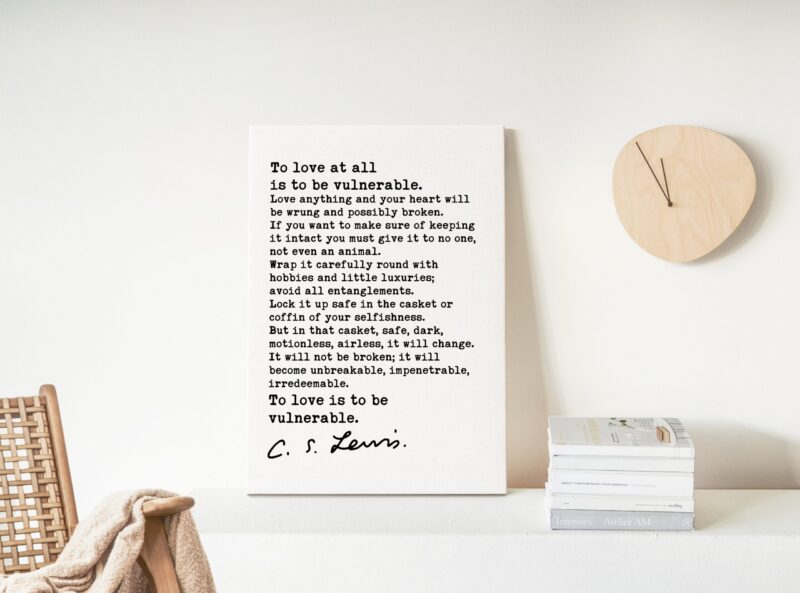 To love at all
is to be vulnerable.
Love anything and your heart will
be wrung and possibly broken.
If you want to make sure of keeping
it intact you must give it to no one,
not even an animal.
Wrap it carefully round with
hobbies and little luxuries;
avoid all entanglements.
Lock it up safe in the casket or
coffin of your selfishness.
But in that casket, safe, dark,
motionless, airless, it will change.
It will not be broken; it will
become unbreakable, impenetrable,
irredeemable.
To love is to be
vulnerable.
C. S. Lewis.
ABOUT CONTEMPORARY PHOTOGRAPHY
Interiors Atelier AM